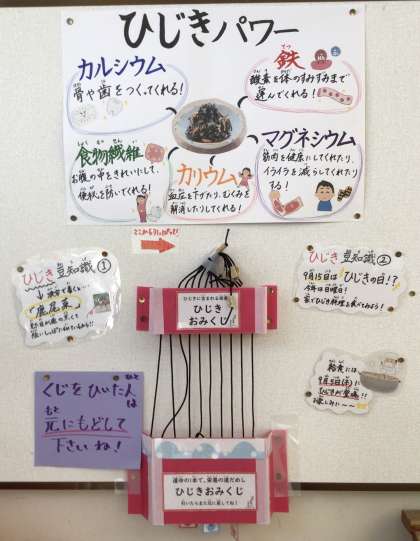 ひじきパワー
カルシウム
骨や歯をつくってくれる！
鉄
酸素を体のすみずみまで
運んでくれる！
食物繊維
お腹の中をきれいにして、
便秘を防いでくれる！
カリウム
血圧を下げたり、むくみを
解消したりしてくれる！
マグネシウム
筋肉を健康にしてくれたり、
イライラを減らしてくれたり
する！
ここから引っぱってね
ひじき豆知識①
漢字で書くと…
鹿尾菜
ひじき豆知識②
9月15日はひじきの日！？
今年は日曜日！
家でひじき料理を食べてみよう！
給食には
9月5日(木)に
ひじきが登場！！
お楽しみに〜〜
ひじきに含まれる栄養
ひじき
おみくじ
くじをひいた人は
元にもどして
下さいね！
運命の1本で、栄養の運だめし
ひじきおみくじ
引いたらまた元に戻してね！